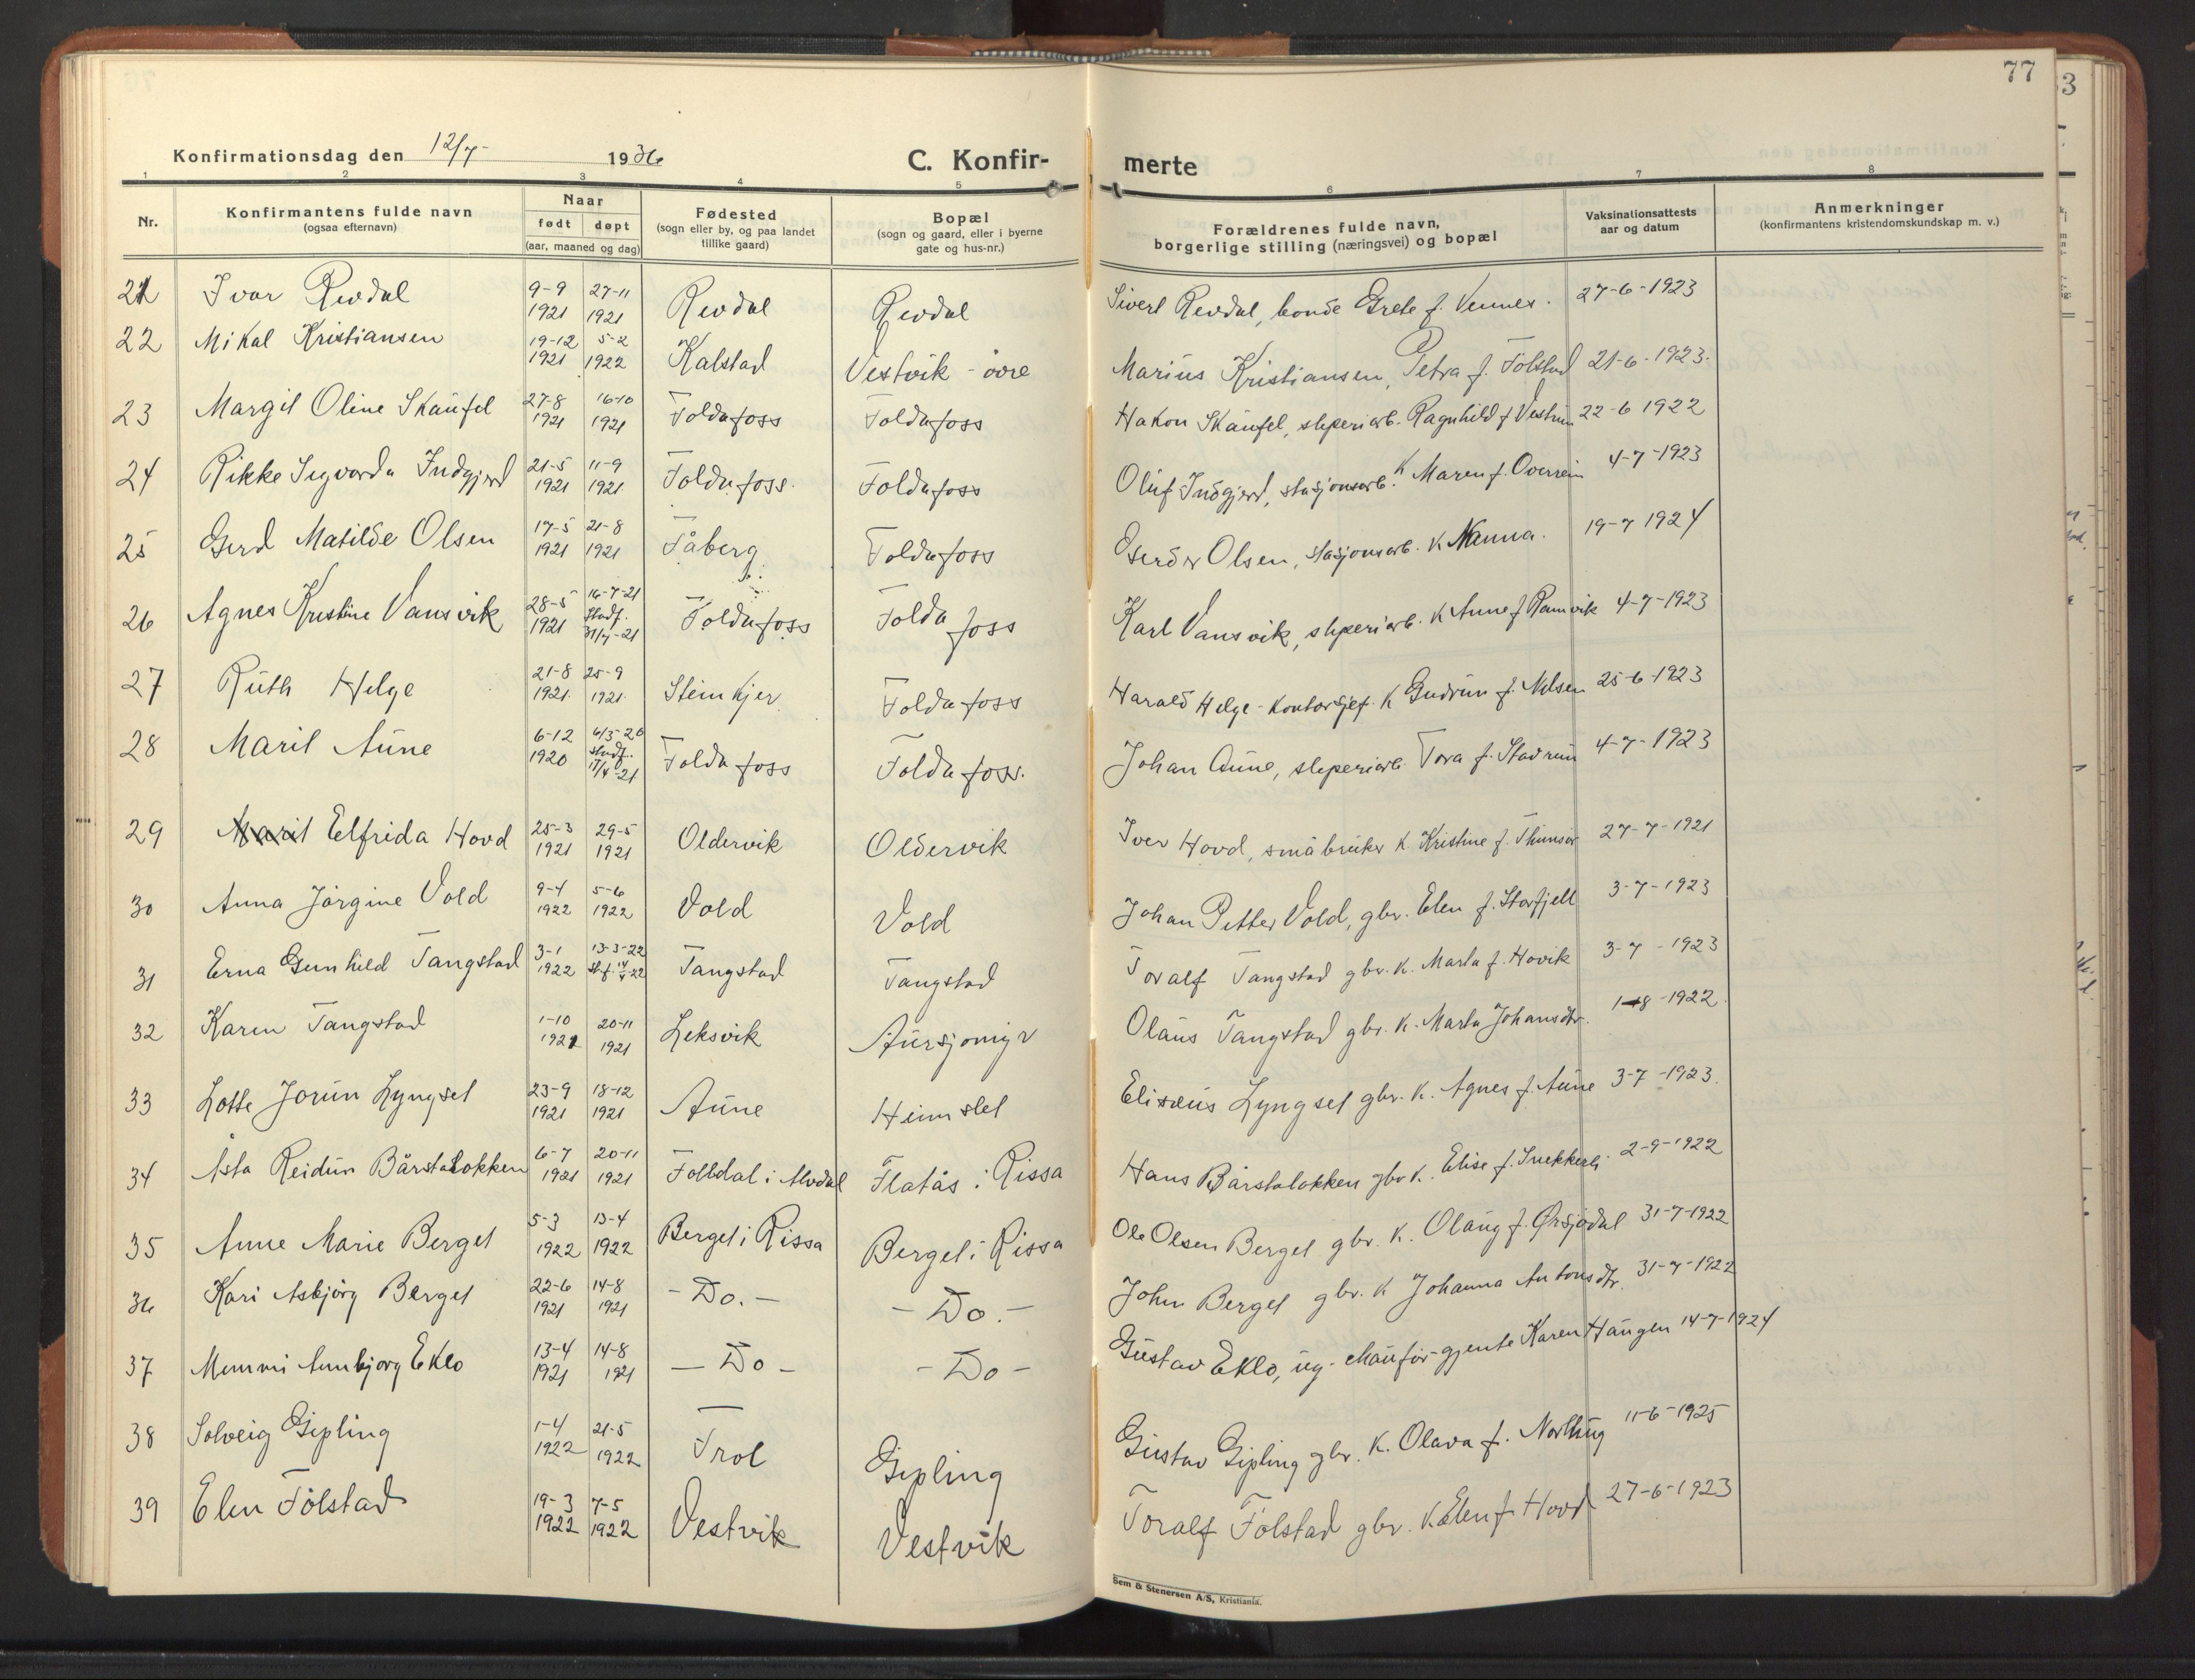 77
Konfirmationsdag den 12/7- 1936
C. Konfir-
merte
1 2 3 4 5 6 7 8
Nr.
Konfirmantens fulde navn
(ogsaa efternavn)
Naar
født døpt
(aar, maaned og dag)
Fødested
(sogn eller by, og paa landet
tillike gaard)
Bopæl
(sogn og gaard, eller i byerne
gate og hus-nr.)
Forældrenes fulde navn,
borgerlige stilling (næringsvei) og bopæl
Vaksinationsattests
aar og datum
Anmerkninger
(konfirmantens kristendomskundskap m. v.)
21 Ivar Revdal 9-9 1921 27-11 1921 Revdal Revdal Sivert Revdal, bonde Grete f. Vennes. 27-6-1923
22 Mikal Kristiansen 19-12 1921 5-2 1922 Kalstad Vestvik - övre Marius Kristiansen, Petra f. Fölstad 21-6-1923.
23 Margit Oline Skaufel 27-8 1921 16-10 1921 Foldafoss Foldafoss Hakon Skaufel, sliperiarb. Ragnhild f. 22-6 1922
24 Rikke Sigvarda Indgjerd 21-5 1921 11-9 1921. Foldafoss. Foldafoss Oluf Indgjerd, stasjonsarb. K Maren f. Overrein 4-7-1923
25 Gerd Matilde Olsen 17-5 1921 21-8 1921 Fåberg Foldafoss Olsen, stasjonsarb. K Nanna. 19-7 1924
26 Agnes Kristine Vansvik 28-5 1921 16-7-21 Stadf. 31/7-21 Foldafoss Folda foss Karl Vansvik, sliperiarb. K Anne f Ramsvik 4-7-1923
27 Ruth Helge 21-8 1921. 25-9 1921. Steinkjer Foldafoss Harald Helge - Kontorsjef. K Gudrun f. Nilsen 25-6-1923
28 Marit Aune 6-12 1920 stadf. 17/4-21 Folda foss Folda foss. Johan Aune, sliperiarb. Tora f. Stadrun 4-7-1923
29 Marit Elfrida Hovd 25-3 1921 29-5 1921 Oldervik Oldervik Iver Hovd, småbruker K. Kristine f. 27-7-1921
30 Anna Jörgine Vold 9-4 1922 5-6 1922 Vold Vold Johan Petter Vold, gbr. Elen f. Storfjell 3-7-1923
31 Erna Gunhild Tangstad 3-1 1922 13-3-22 Tangstad Tangstad Toralf Tangstad gbr. K. Marta f. Hovik 3-7-1923
32 Karen Tangstad 1-10 1921 20-11 1921 Leksvik Aursjomyr Olaus Tangstad gbr. K. Marta Johansdtr. 1-8-1922.
33 Lotte Jorun Lyngset 23-9 1921 18-12 1921 Aune Heimslet Eliseus Lyngset gbr. K. Agnes f. Aune 3-7-1923.
34 Åsta Reidun Bårstalokken 6-7 1921 20-11 1921 Folldal i Alvdal Flatås i Rissa Hans Bårstalokken gbr K. Elise f. 2-9-1922
35 Anne Marie Berget 5-3 1922 13-4 1922 Berget i Rissa Berget i Rissa Ole Olsen Berget gbr. K. Olaug f. Ørsjödal 31-7-1922
36 Kari Asbjörg Berget 22-6 1921 14-8 1921 - Do. - - Do. - John Berget gbr. K Johanna Antonsdtr. 31-7-1922
37 Memmi Annbjorg Eklo 13-4 1921 14-8 1921 - Do - - Do - Gustav Eklo, ug. chauför-gjente Karen Haugen 14-7-1924
38 Solveig Gipling 1-4 1922 21-5 1922 Trol Gipling Gustav Gipling gbr. K. Olava f. Northug 11-6-1925
39 Elen Fölstad 19-3 1922 7-5 1922 Vestvik Vestvik Toralf Fölstad gbr. K. Elen f. Hovd 27-6-1923
Sem & Stenersen A/S, Kristiania.